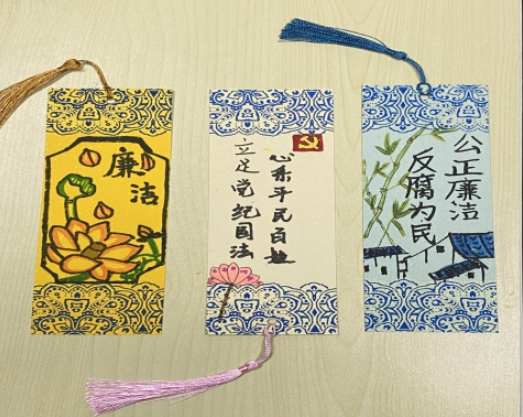 廉洁
心系平民百姓
立足党纪国法
公正廉洁
反腐为民